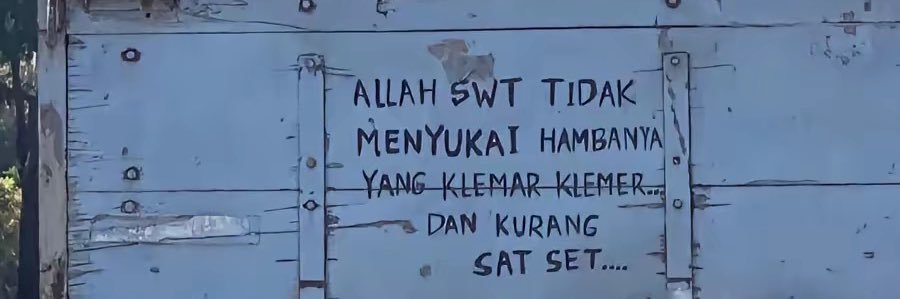 ALLAH SWT TIDAK
MENYUKAI HAMBANYA
YANG KLEMAR KLEMER...
DAN KURANG
SAT SET....